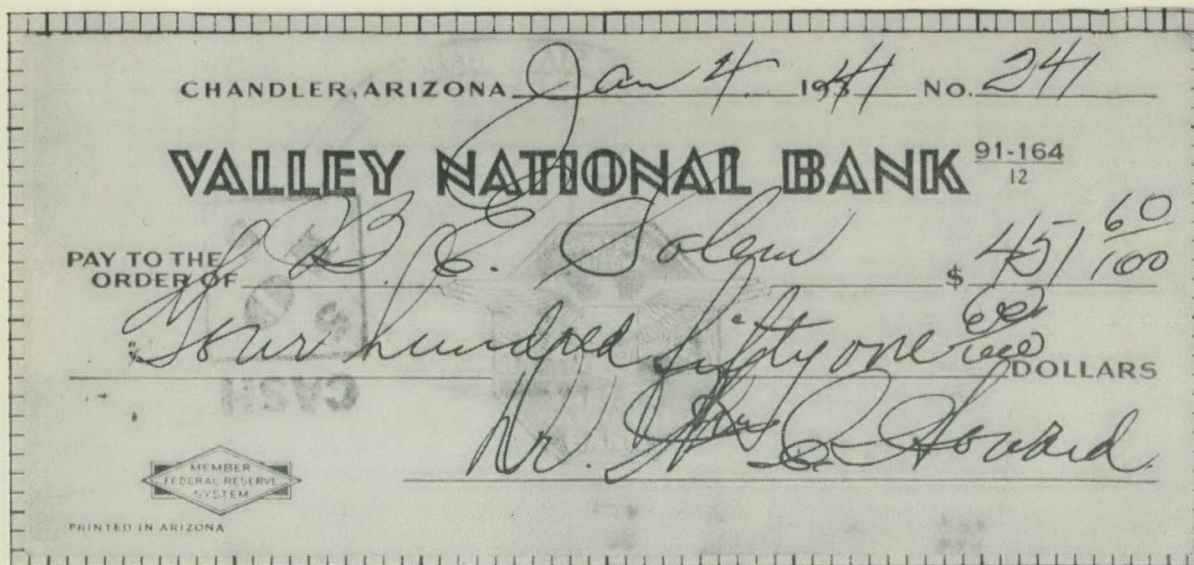 CHANDLER, ARIZONA Jan 4 1941 No. 241
VALLEY NATIONAL BANK 91-164/12
PAY TO THE ORDER OF B. E. Solem $ 451 60/100
Four hundred fifty one 60/100 DOLLARS
CASH
Dr. C. Howard
MEMBER
FEDERAL RESERVE
SYSTEM
PRINTED IN ARIZONA